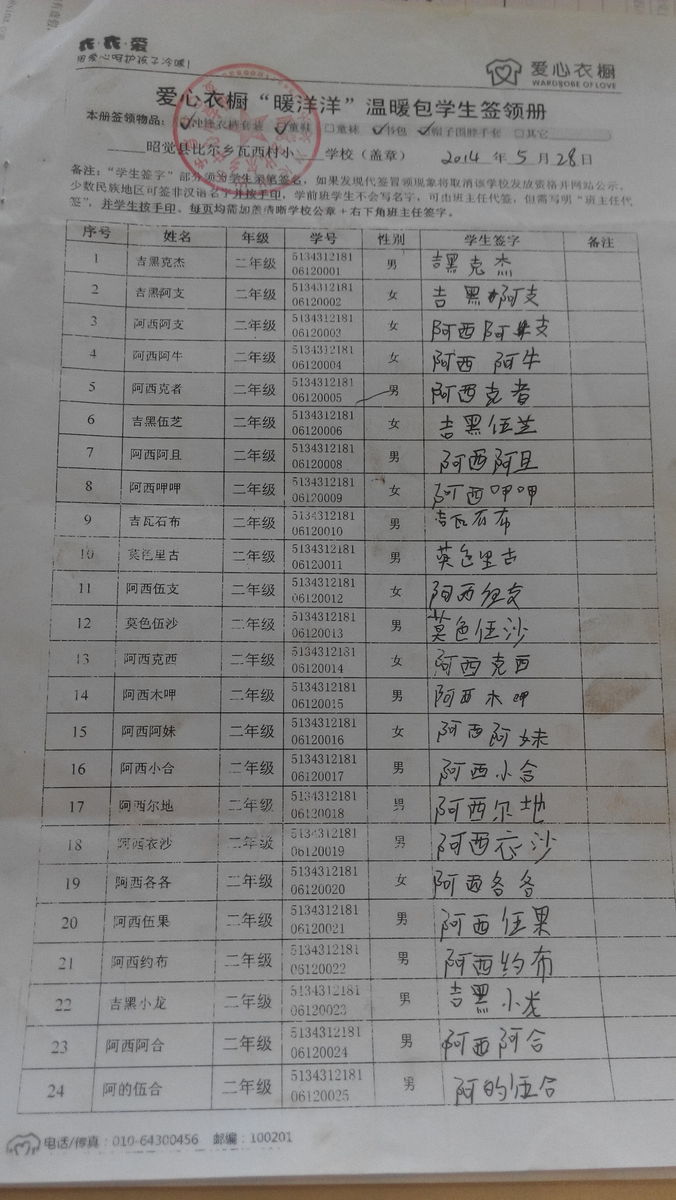 衣·衣·爱
用爱心呵护孩子冷暖!
爱心衣橱
WARDROBE OF LOVE
爱心衣橱“暖洋洋”温暖包学生签领册
本册签领物品: ✓冲锋衣裤套装 ✓童鞋 □童袜 ✓书包 ✓帽子围脖手套 □其它
昭觉县比尔乡瓦西村小 学校(盖章) 2014 年 5 月 28 日
备注:“学生签字”部分须为学生亲笔签名,如果发现代签冒领现象将取消该学校发放资格并网站公示,
少数民族地区可签非汉语名字并按手印,学前班学生不会写名字,可由班主任代签,但需写明“班主任代
签”,并学生按手印、每页均需加盖清晰学校公章+右下角班主任签字。
序号 姓名 年级 学号 性别 学生签字 备注
1 吉黑克杰 二年级 5134312181 06120001 男 吉黑克杰
2 吉黑阿支 二年级 5134312181 06120002 女 吉黑阿支
3 阿西阿支 二年级 5134312181 06120003 女 阿西阿支
4 阿西阿牛 二年级 5134312181 06120004 女 阿西阿牛
5 阿西克者 二年级 5134312181 06120005 男 阿西克者
6 吉黑伍芝 二年级 5134312181 06120006 女 吉黑伍芝
7 阿西阿且 二年级 5134312181 06120008 男 阿西阿且
8 阿西呷呷 二年级 5134312181 06120009 女 阿西呷呷
9 吉瓦石布 二年级 5134312181 06120010 男 吉瓦石布
10 莫色里古 二年级 5134312181 06120011 男 莫色里古
11 阿西伍支 二年级 5134312181 06120012 女 阿西伍支
12 莫色伍沙 二年级 5134312181 06120013 男 莫色伍沙
13 阿西克西 二年级 5134312181 06120014 女 阿西克西
14 阿西木呷 二年级 5134312181 06120015 男 阿西木呷
15 阿西阿妹 二年级 5134312181 06120016 女 阿西阿妹
16 阿西小合 二年级 5134312181 06120017 男 阿西小合
17 阿西尔地 二年级 5134312181 06120018 男 阿西尔地
18 阿西衣沙 二年级 5134312181 06120019 男 阿西衣沙
19 阿西各各 二年级 5134312181 06120020 女 阿西各各
20 阿西伍果 二年级 5134312181 06120021 男 阿西伍果
21 阿西约布 二年级 5134312181 06120022 男 阿西约布
22 吉黑小龙 二年级 5134312181 06120023 男 吉黑小龙
23 阿西阿合 二年级 5134312181 06120024 男 阿西阿合
24 阿的伍合 二年级 5134312181 06120025 男 阿的伍合
电话/传真:010-64300456 邮编:100201